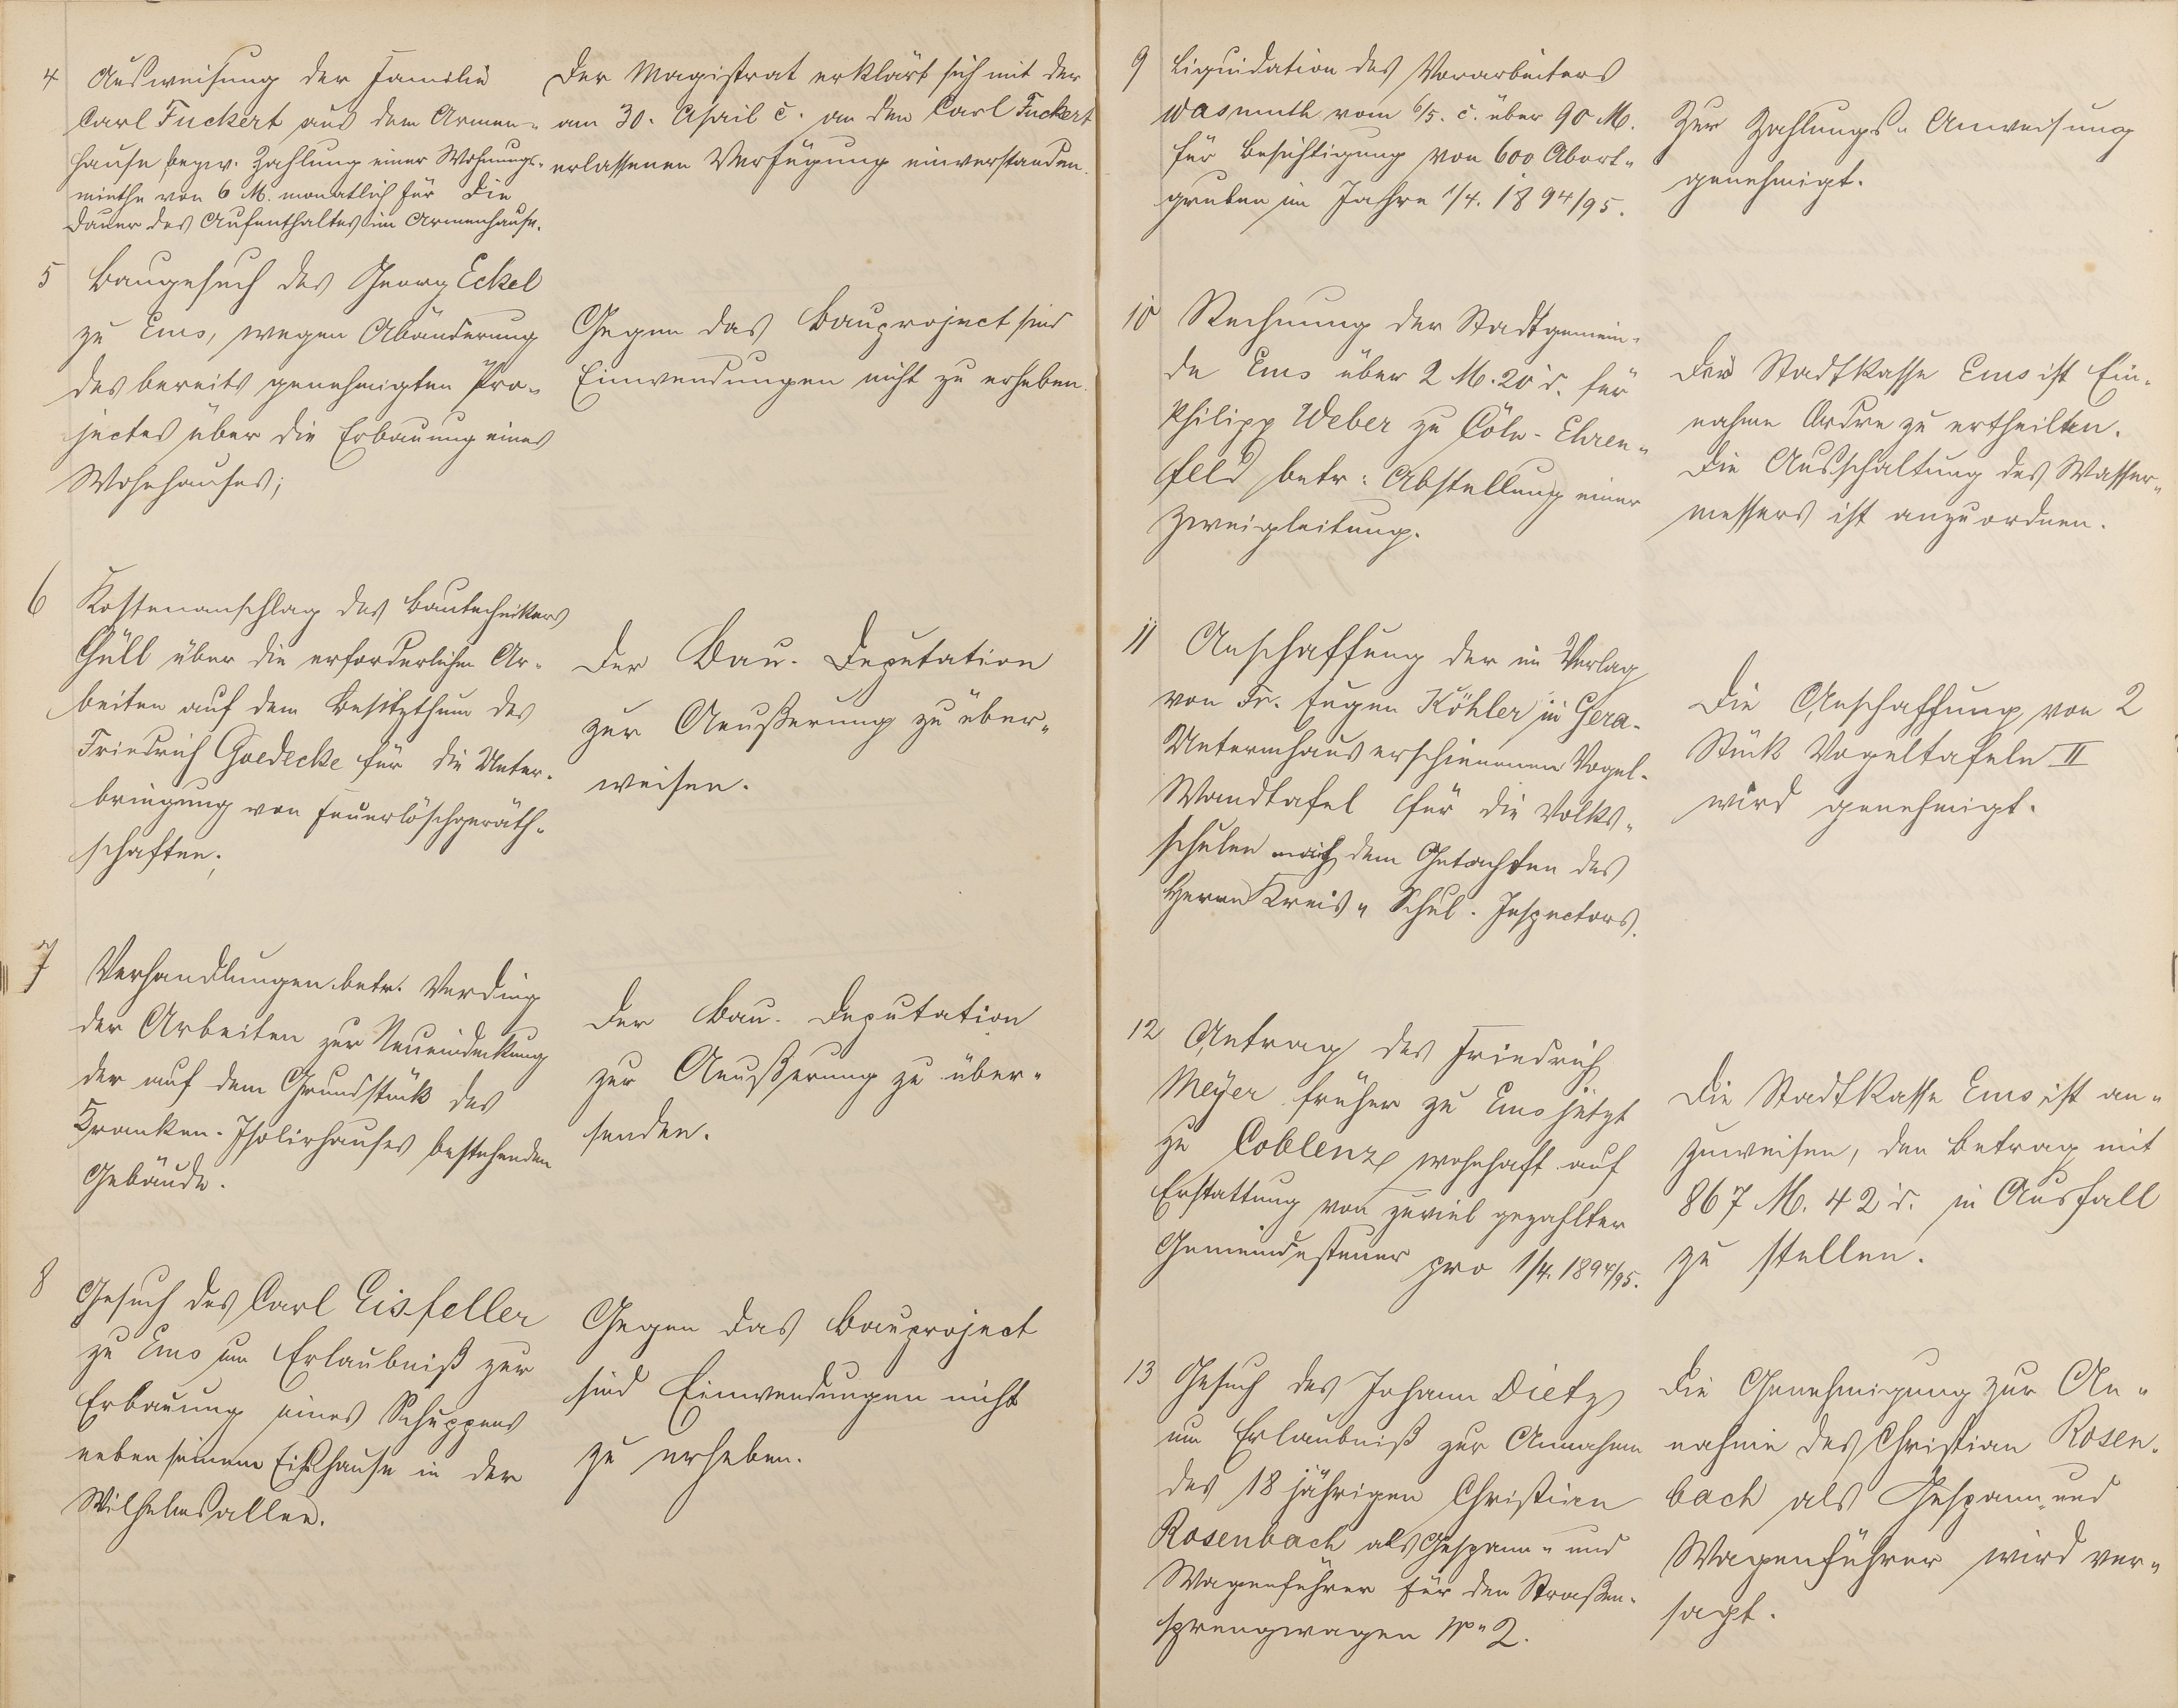 4 Ausweisung der Familie
Carl Fuckert aus dem Armen-
hause bezw. Zahlung einer Wohnungs-
miethe von 6 M. monatlich für die
Dauer des Aufenthaltes im Armenhause.
Der Magistrat erklärt sich mit der
am 30. April c. an den Carl Fuckert
erlassenen Verfügung einverstanden.
5 Baugesuch des Georg Eckel
zu Ems, wegen Abänderung
des bereits genehmigten Pro-
jectes über die Erbauung eines
Wohnhauses;
Gegen das Bauproject sind
Einwendungen nicht zu erheben.
6 Kostenanschlag des Bautechnikers
Güll über die erforderlichen Ar-
beiten auf dem Besitzthum des
Friedrich Goedecke für die Unter-
bringung von Feuerlöschgeräth-
schaften;
Der Bau-Deputation
zur Aeußerung zu über-
weisen.
7 Verhandlungen betr. Verding
der Arbeiten zur Neueindeckung
der auf dem Grundstück des
Kranken-Isolirhauses bestehenden
Gebäude.
Der Bau-Deputation
zur Aeußerung zu über-
senden.
8 Gesuch des Carl Eisfeller
zu Ems um Erlaubniß zur
Erbauung eines Schuppens
neben seinem Eishause in der
Wilhelmsallee.
Gegen das Bauproject
sind Einwendungen nicht
zu erheben.
9 Liquidation des Vorarbeiters
Wasmuth vom 6/5. c. über 90 M.
für Besichtigung von 600 Abort-
gruben im Jahre 1/4. 1894/95.
Zur Zahlungs-Anweisung
genehmigt.
10 Rechnung der Stadtgemein-
de Ems über 2 M. 20 d. für
Philipp Weber zu Cöln-Ehren-
feld betr: Abstellung einer
Zweigleitung.
Der Stadtkasse Ems ist Ein-
nahme Ordre zu ertheilen.
Die Ausschaltung des Wasser-
messers ist anzuordnen.
11 Anschaffung der im Verlag
von Fr. Eugen Köhler in Gera-
Untermhaus erschienenen Vogel-
Wandtafel für die Volks-
schulen nach dem Gutachten des
Herrn Kreis-Schul-Inspectors.
Die Anschaffung von 2
Stück Vogeltafeln II
wird genehmigt.
12 Antrag des Friedrich
Meyer früher zu Ems jetzt
zu Coblenz wohnhaft auf
Erstattung von zuviel gezahlter
Gemeindesteuer pro 1/4. 1894/95.
Die Stadtkasse Ems ist an-
zuweisen, den Betrag mit
867 M. 42 d. in Ausfall
zu stellen.
13 Gesuch des Johann Dietz
um Erlaubniß zur Annahme
des 18 jährigen Christian
Rosenbach als Gespann- und
Wagenführer für den Straßen-
sprengwagen No 2.
Die Genehmigung zur An-
nahme des Christian Rosen-
bach als Gespann- und
Wagenführer wird ver-
sagt.